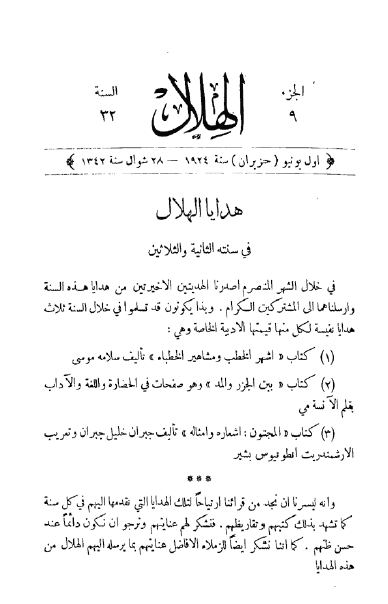 الجزء
٩
الهلال
السنة
٣٢
اول يونيو ( حزيران ) سنة ١٩٢٤ — ٢٨ شوال سنة ١٣٤٢
هدايا الهلال
في سنته الثانية والثلاثين
في خلال الشهر المنصرم اصدرنا الهديتين الاخيرتين من هدايا هذه السنة
وارسلناهما الى المشتركين الكرام . وبذا يكونون قد تسلموا في خلال السنة ثلاث
هدايا نفيسة لكل منها قيمتها الادبية الخاصة وهي :
(١) كتاب « اشهر الخطب ومشاهير الخطباء » تأليف سلامه موسى
(٢) كتاب « بين الجزر والمد » وهو صفحات في الحضارة واللغة والآداب
بقلم الآنسة مي
(٣) كتاب « المجنون : اشعاره وامثاله » تأليف جبران خليل جبران وتعريب
الارشمندريت انطونيوس بشير
* * *
وانه ليسرنا ان نجد من قرائنا ارتياحاً لتلك الهدايا التي نقدمها اليهم في كل سنة
كما تشهد بذلك كتبهم وتقاريظهم . فنشكر لهم عنايتهم ونرجو ان نكون دائماً عند
حسن ظنهم . كما اننا نشكر ايضاً للزملاء الافاضل عنايتهم بما يرسله اليهم الهلال من
هذه الهدايا